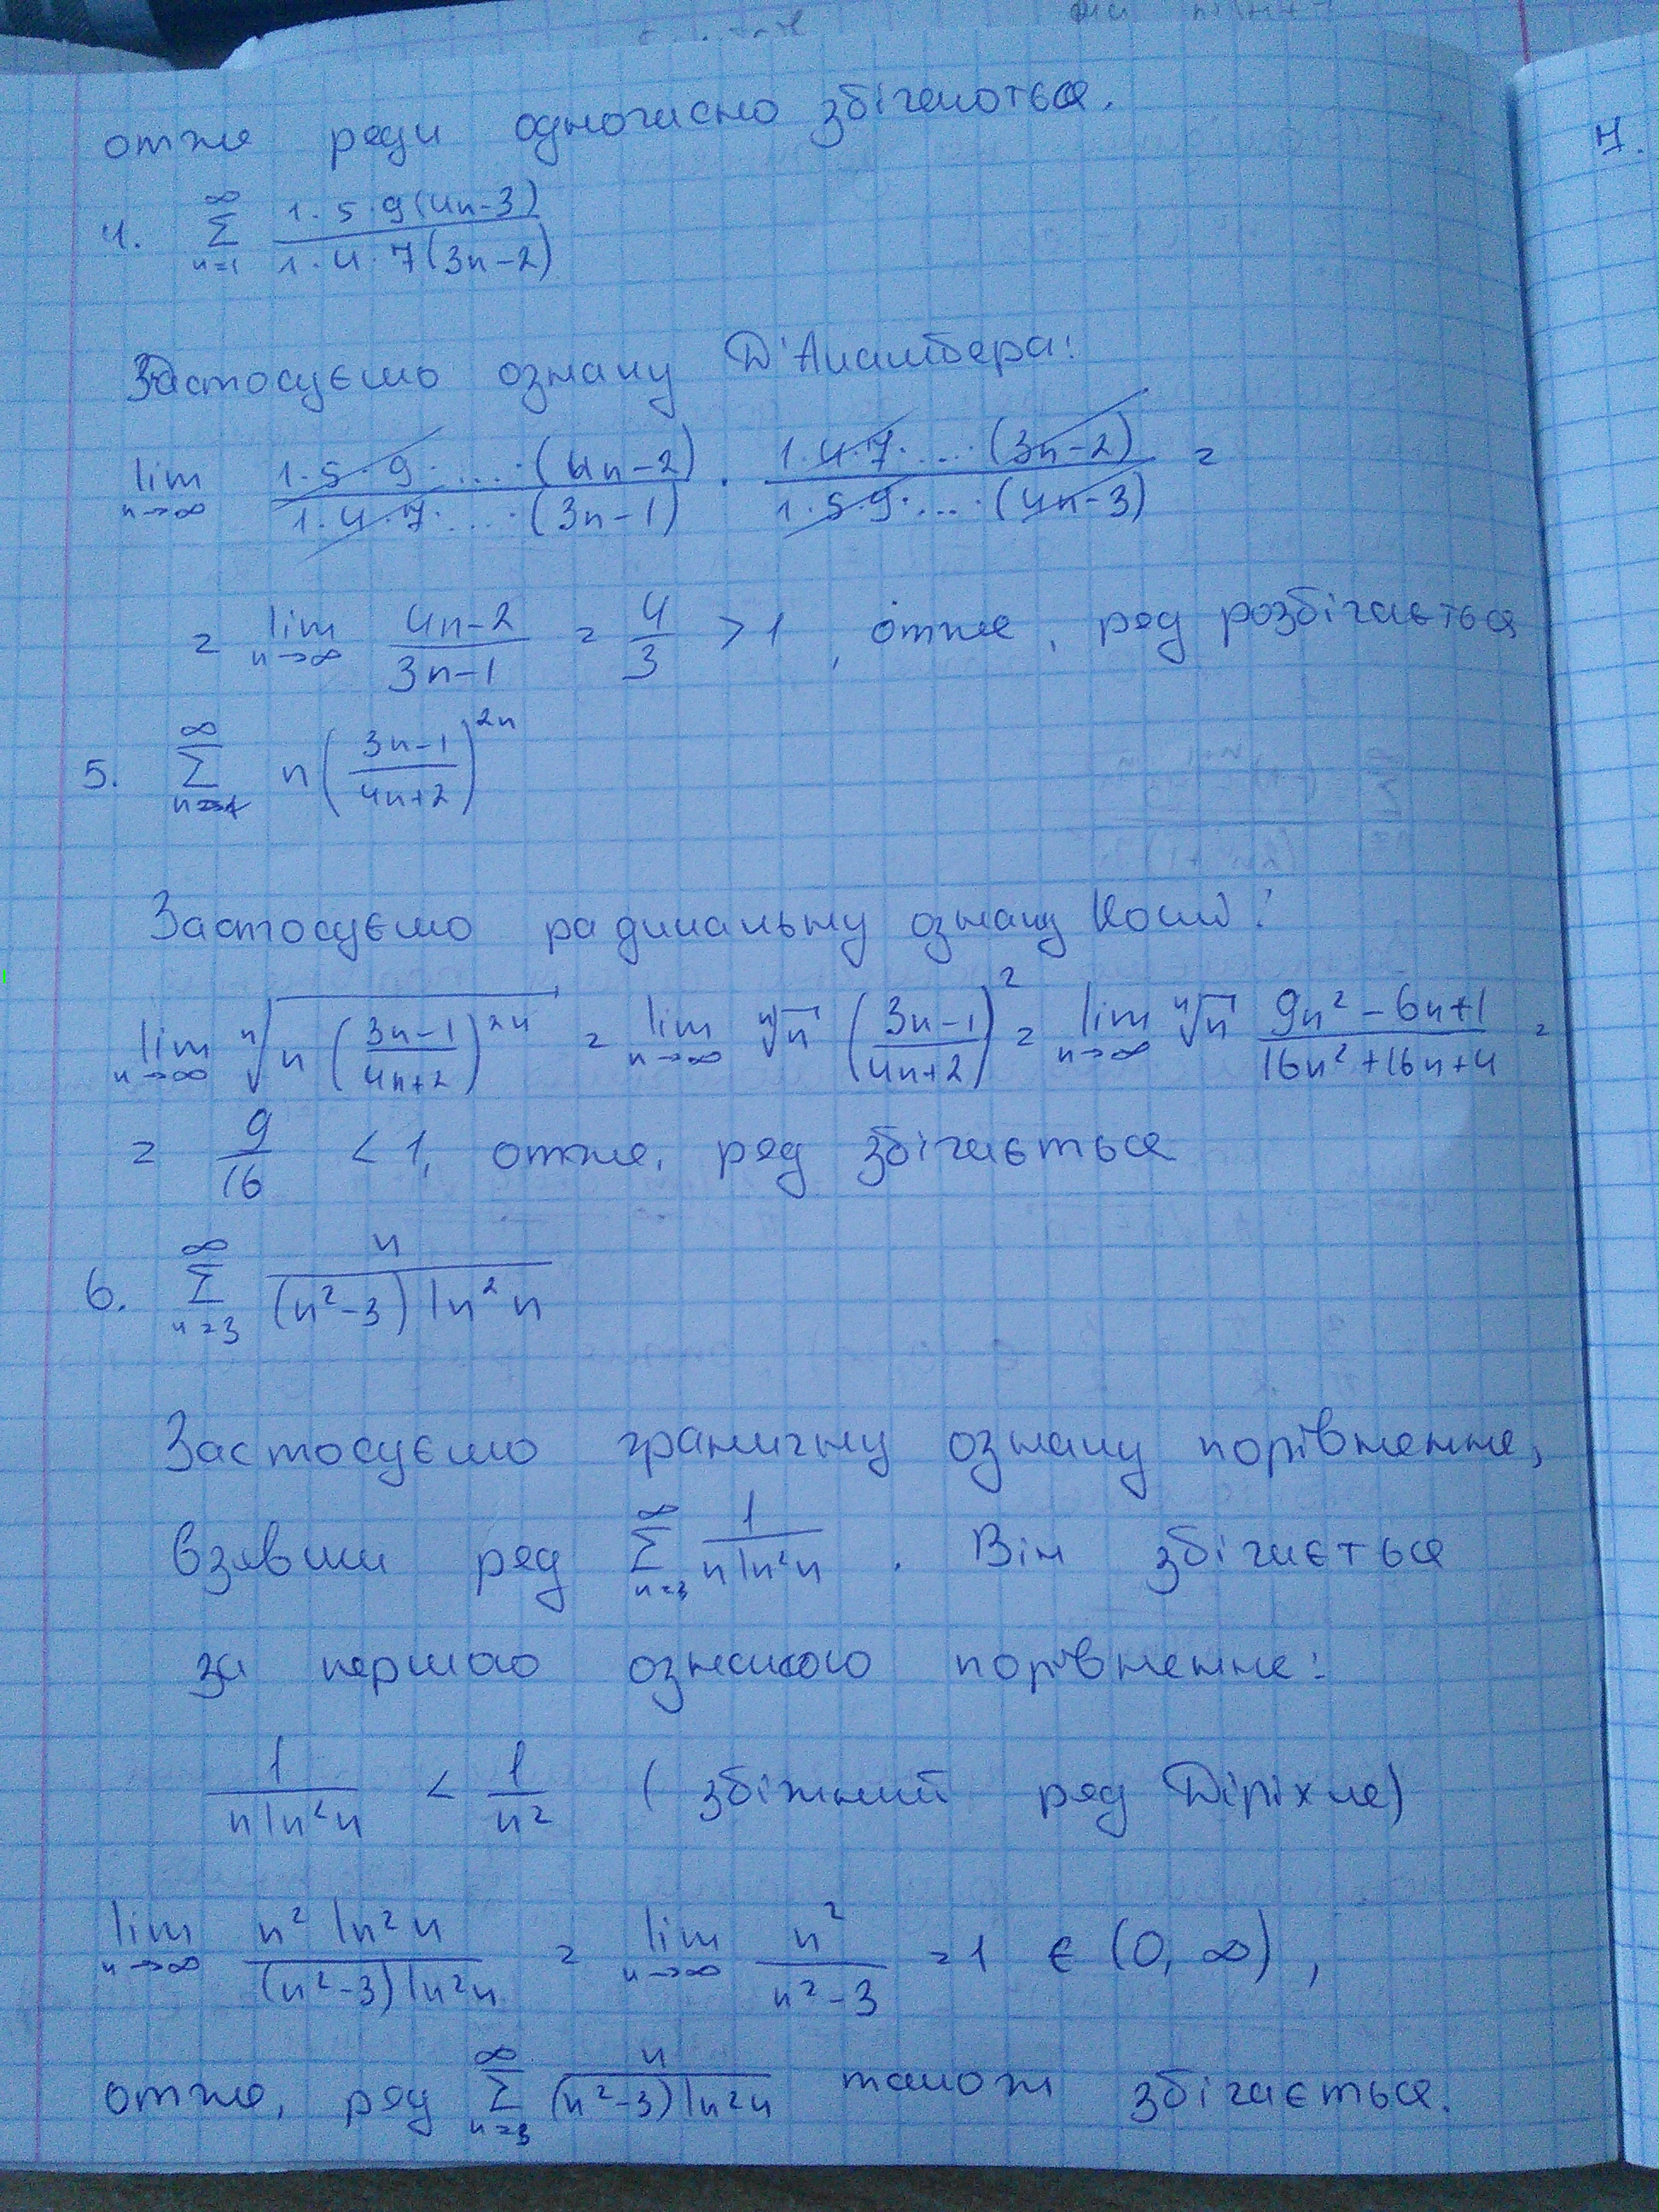 отже ряди одночасно збігаються.
7.
4. ∞ Σ n=1 1·5·9(4n-3) / 1·4·7(3n-2)
Застосуємо ознаку Д'Аламбера:
lim n→∞ 1·5·9·....·(4n-2) / 1·4·7·....·(3n-1) · 1·4·7·....·(3n-2) / 1·5·9·....·(4n-3) =
= lim n→∞ 4n-2 / 3n-1 = 4/3 >1, отже, ряд розбігається
5. ∞ Σ n=1 n(3n-1 / 4n+2)^2n
Застосуємо радикальну ознаку Коші:
lim n→∞ ⁿ√n(3n-1 / 4n+2)^2n = lim n→∞ ⁿ√n (3n-1 / 4n+2)^2 = lim n→∞ ⁿ√n 9n²-6n+1 / 16n²+16n+4 =
= 9/16 < 1, отже, ряд збігається
6. ∞ Σ n=3 n / (n²-3) ln²n
Застосуємо граничну ознаку порівняння,
взявши ряд ∞ Σ n=3 1 / n ln²n . Він збігається
за першою ознакою порівняння:
1 / n ln²n < 1 / n² (збіжний ряд Діріхле)
lim n→∞ n² ln²n / (n²-3) ln²n = lim n→∞ n² / n²-3 = 1 ∈ (0, ∞),
отже, ряд ∞ Σ n=3 n / (n²-3) ln²n також збігається.